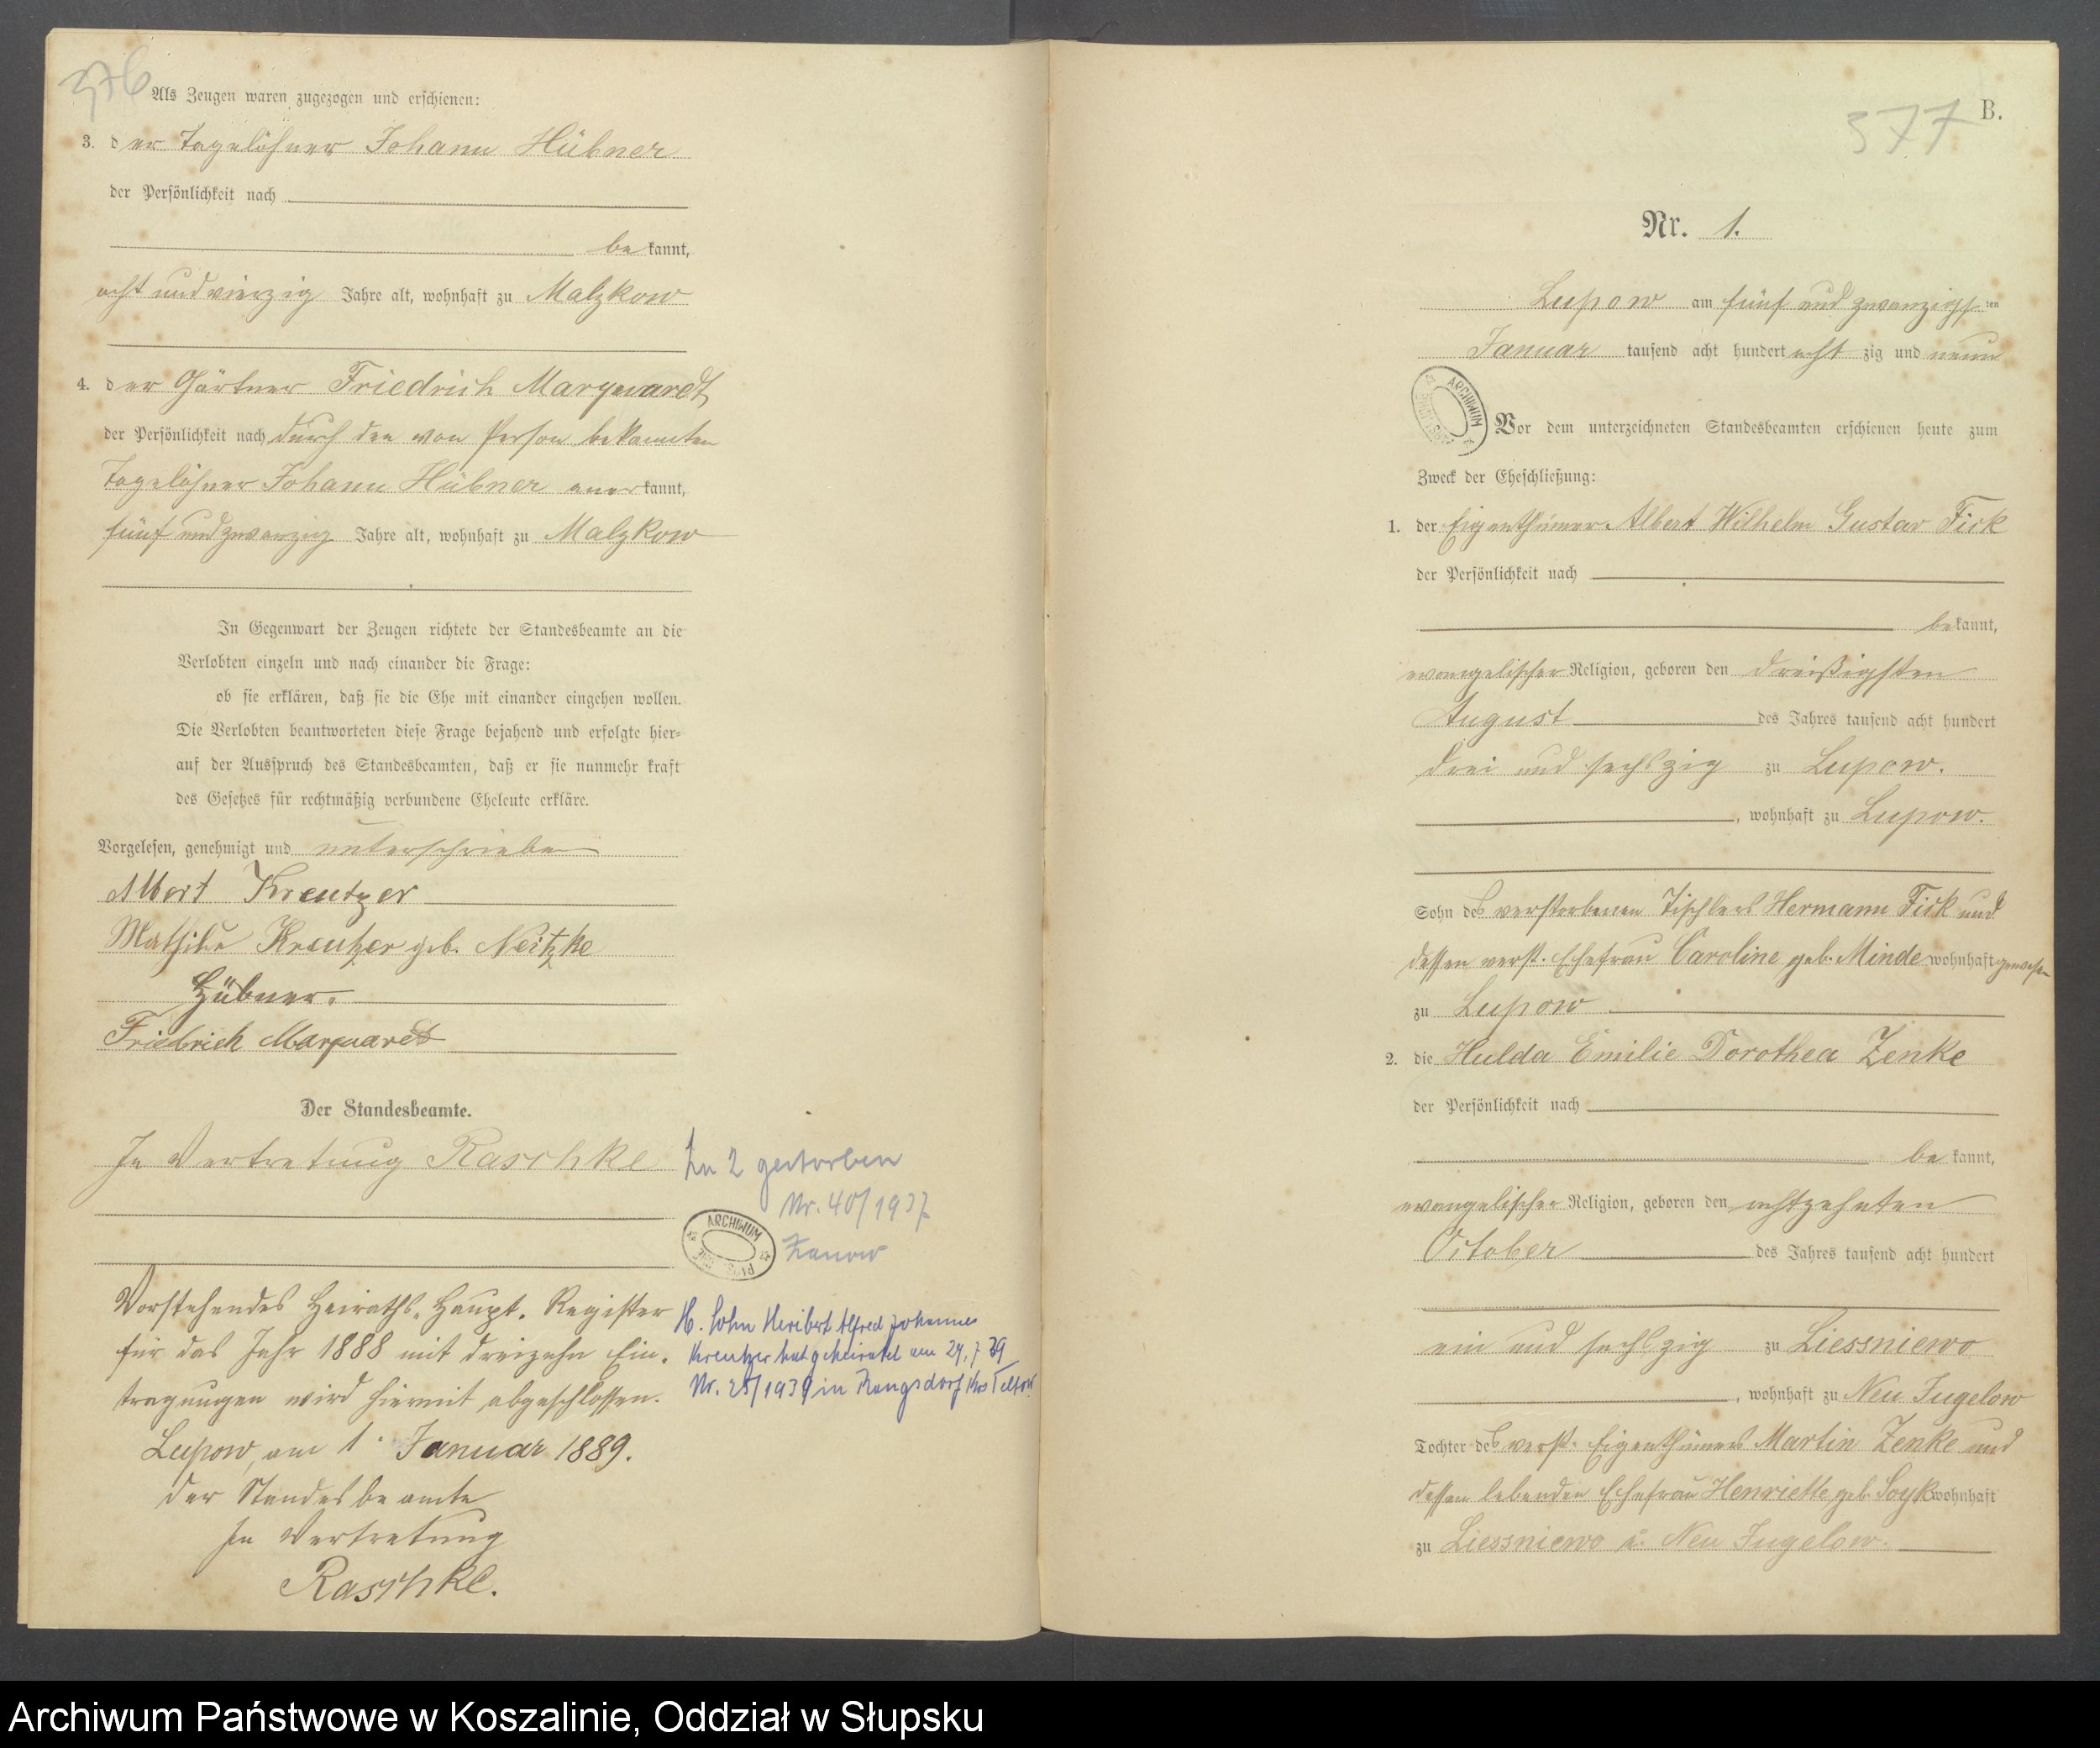 376
Als Zeugen waren zugezogen und erschienen:
3. der Tagelöhner Johann Hübner
der Persönlichkeit nach
bekannt,
acht und vierzig Jahre alt, wohnhaft zu Malzkow
4. der Gärtner Friedrich Marquardt
der Persönlichkeit nach durch den von Person bekannten
Tagelöhner Johann Hübner anerkannt,
fünf und zwanzig Jahre alt, wohnhaft zu Malzkow
In Gegenwart der Zeugen richtete der Standesbeamte an die
Verlobten einzeln und nach einander die Frage:
ob sie erklären, daß sie die Ehe mit einander eingehen wollen.
Die Verlobten beantworteten diese Frage bejahend und erfolgte hier-
auf der Ausspruch des Standesbeamten, daß er sie nunmehr kraft
des Gesetzes für rechtmäßig verbundene Eheleute erkläre.
Vorgelesen, genehmigt und unterschrieben
Albert Kreutzer
Mathilde Kreutzer geb. Neitzke
Hübner.
Friedrich Marquardt
Der Standesbeamte.
In Vertretung Raschke
Zu 2 gestorben
Nr. 40/1937
Zanow
ARCHIWUM
Vorstehendes Heiraths-Haupt-Register
für das Jahr 1888 mit dreizehn Ein-
tragungen wird hiermit abgeschlossen.
Lupow, am 1. Januar 1889.
Der Standesbeamte
In Vertretung
Raschke.
H. Sohn Heribert Alfred Johannes
Kreutzer hat geheiratet am 29.7.39
Nr. 25/1939 in Rangsdorf Krs Teltow
377
B.
Nr. 1.
Lupow am fünf und zwanzigsten
Januar tausend acht hundert achtzig und neun
ARCHIWUM
Vor dem unterzeichneten Standesbeamten erschienen heute zum
Zweck der Eheschließung:
1. der Eigenthümer Albert Wilhelm Gustav Fick
der Persönlichkeit nach
bekannt,
evangelischer Religion, geboren den dreißigsten
August des Jahres tausend acht hundert
drei und sechszig zu Lupow.
, wohnhaft zu Lupow.
Sohn des verstorbenen Tischlers Hermann Fick und
dessen verst. Ehefrau Caroline geb. Minde wohnhaft gewesen
zu Lupow
2. die Hulda Emilie Dorothea Zenke
der Persönlichkeit nach
bekannt,
evangelischer Religion, geboren den achtzehnten
October des Jahres tausend acht hundert
ein und sechszig zu Liessniewo
, wohnhaft zu Neu Jugelow
Tochter des verst. Eigenthümers Martin Zenke und
dessen lebenden Ehefrau Henriette geb. Soyk wohnhaft
zu Liessniewo u. Neu Jugelow.
Archiwum Państwowe w Koszalinie, Oddział w Słupsku